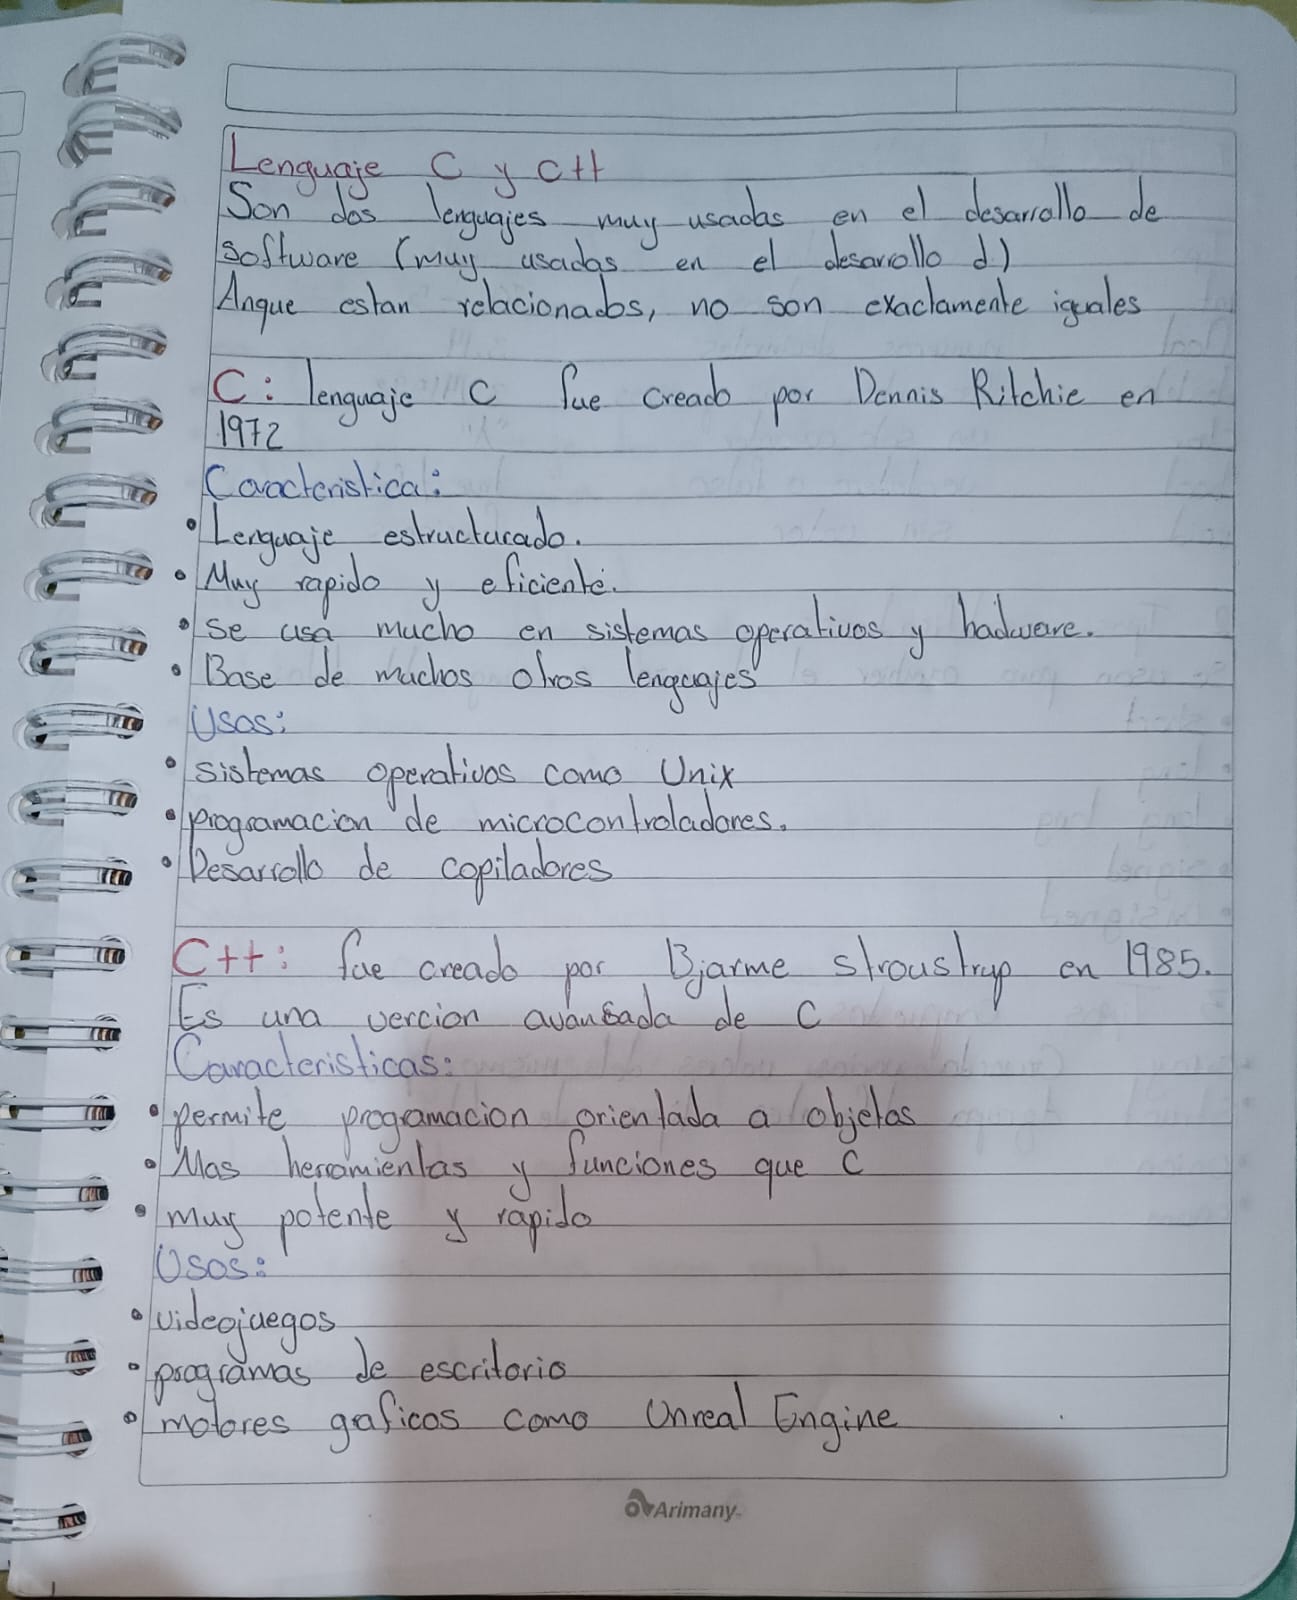 Lenguaje C y C++
Son dos lenguajes muy usadas en el desarrollo de
software (muy usadas en el desarollo d)
Anque estan relacionados, no son exactamente iguales
C: lenguaje C fue creado por Dennis Ritchie en
1972
Caracteristica:
• Lenguaje estructurado.
• Muy rapido y eficiente.
• se usa mucho en sistemas operativos y hadware.
• Base de muchos otros lenguajes
Usos:
• sistemas operativos como Unix
• programacion de microcontroladores.
• Desarrollo de copiladores
C++: fue creado por Bjarme stroustrup en 1985.
Es una vercion avansada de C
Caracteristicas:
• permite programacion orientada a objetos
• Mas herramientas y funciones que C
• muy potente y rapido
Usos:
• videojuegos
• programas de escritorio
• motores graficos como Unreal Engine
Arimany